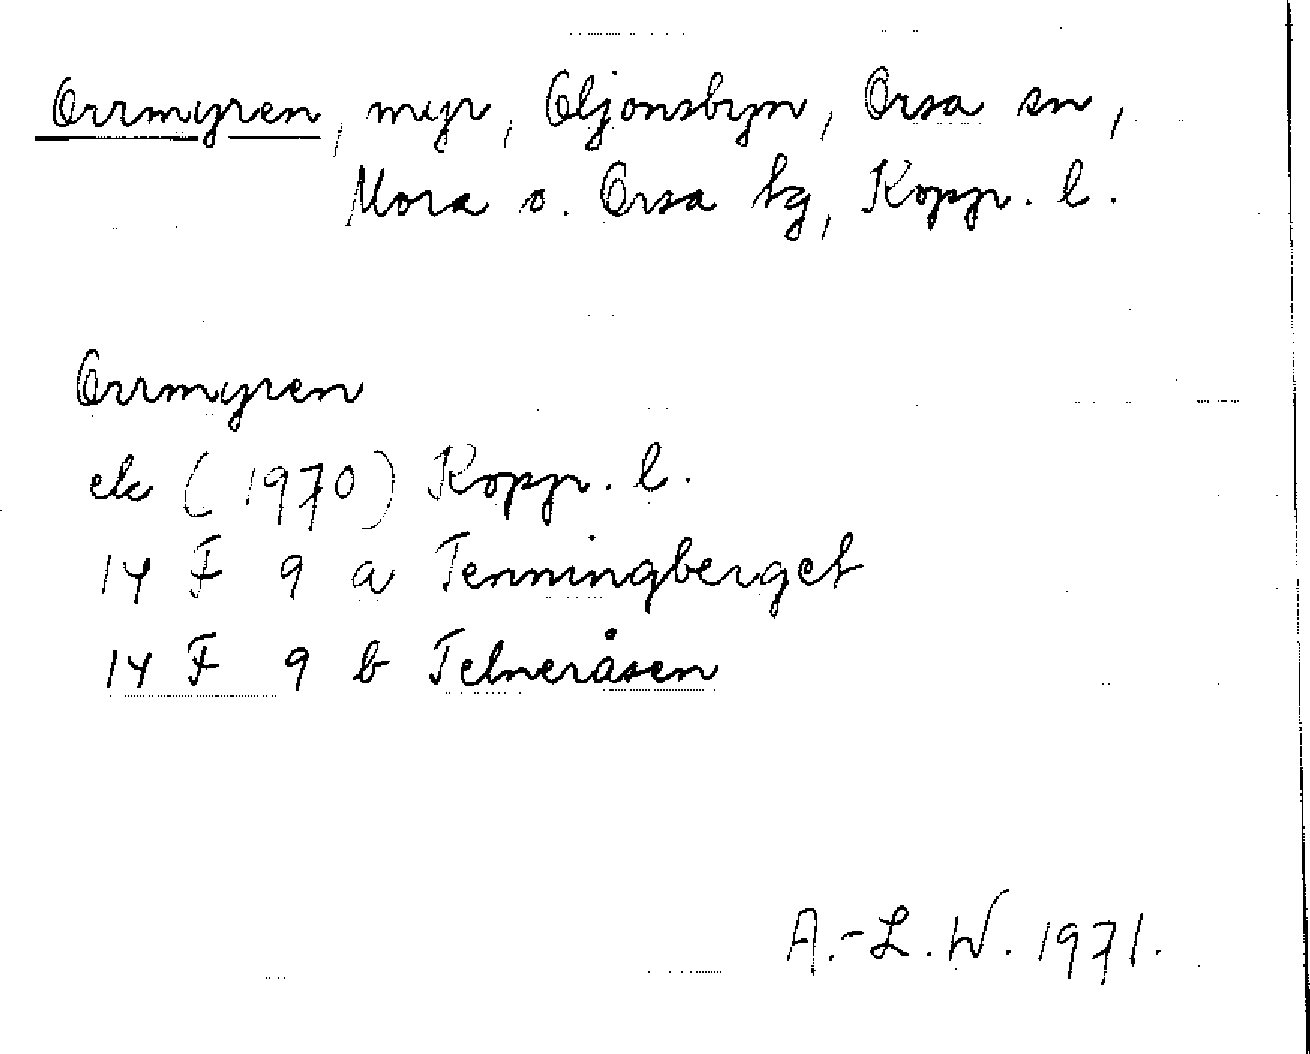 Orrmyren, myr, Oljonsbyn, Orsa sn,
Mora o. Orsa tg, Kopp. l.
Orrmyren
ek (1970) Kopp. l.
14 F 9 a Tenningberget
14 F 9 b Telneråsen
A.-L. W. 1971.